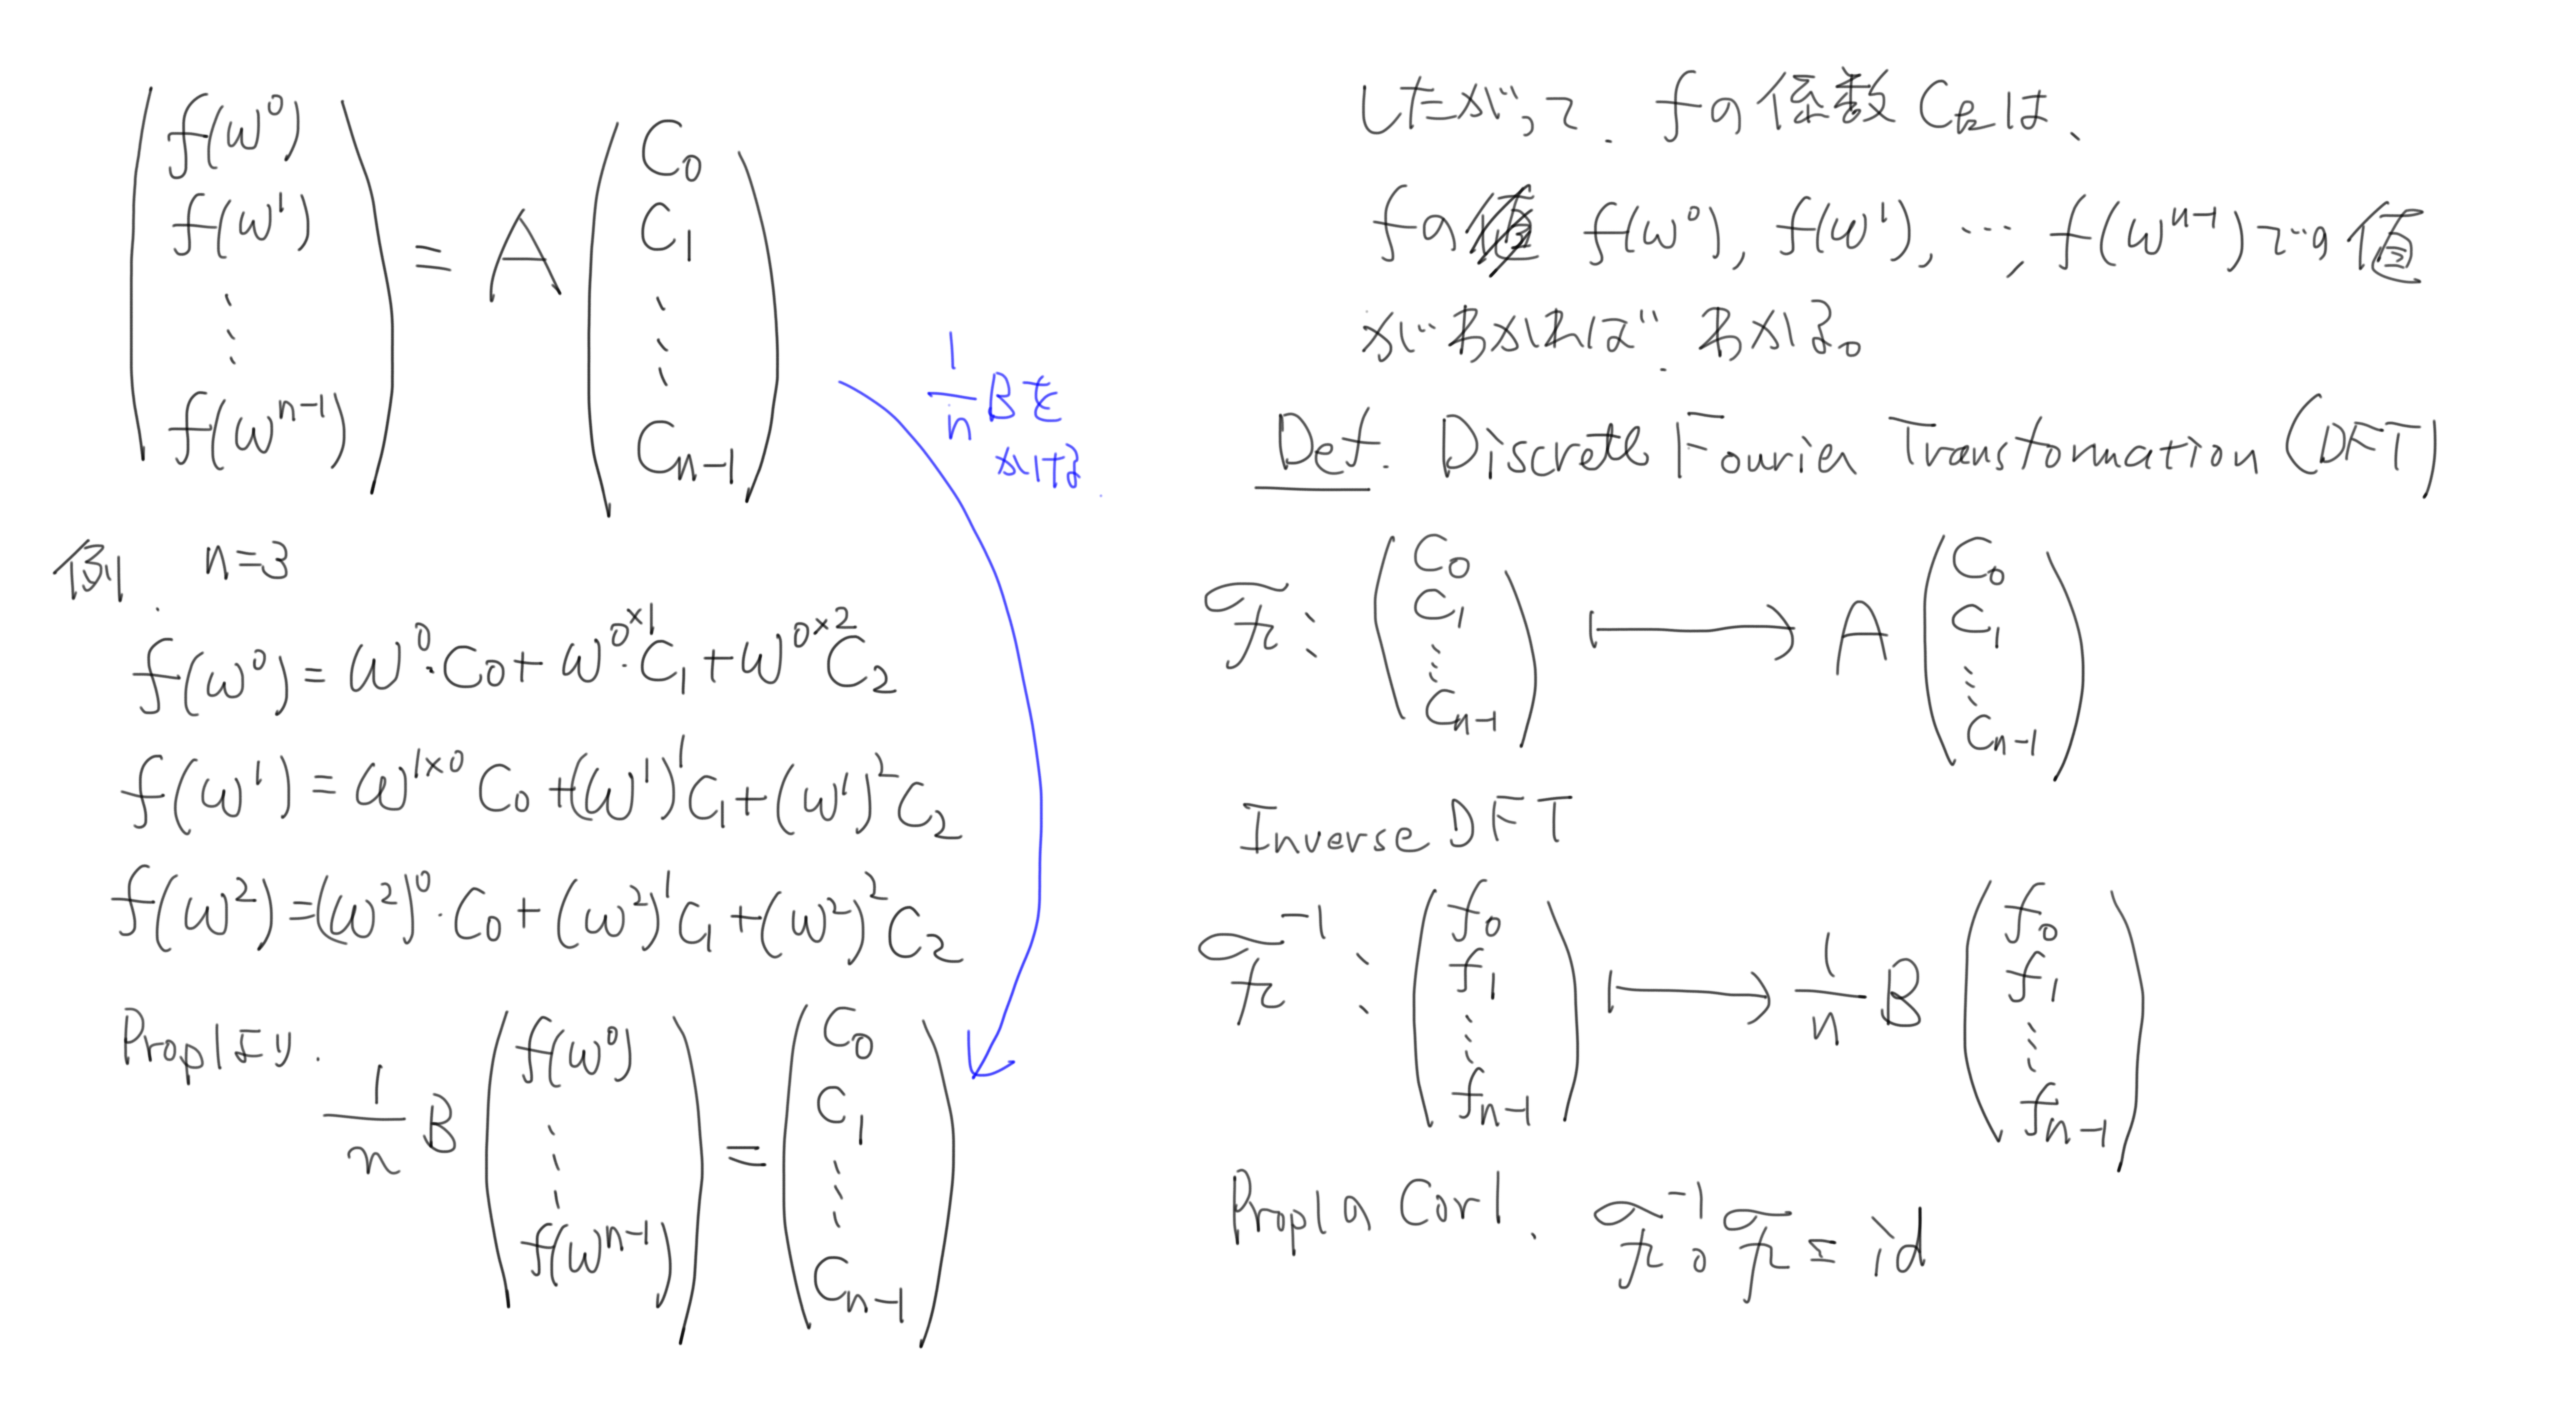 f(ω^0)
f(ω^1)
⋮
f(ω^{n-1})
= A
C_0
C_1
⋮
C_{n-1}
1/n Bを
かける.
例. n=3
f(ω^0) = ω^0·C_0 + ω^{0×1}·C_1 + ω^{0×2} C_2
f(ω^1) = ω^{1×0} C_0 + (ω^1)^1 C_1 + (ω^1)^2 C_2
f(ω^2) = (ω^2)^0·C_0 + (ω^2)^1 C_1 + (ω^2)^2 C_2
Prop1より.
1/n B
f(ω^0)
⋮
f(ω^{n-1})
=
C_0
C_1
⋮
C_{n-1}
したがって. fの係数C_kは、
fの f(ω^0), f(ω^1), …, f(ω^{n-1})での値
がわかれば. わかる。
Def. Discrete Fourier Transformation (DFT)
ℱ:
C_0
C_1
⋮
C_{n-1}
⟼ A
C_0
C_1
⋮
C_{n-1}
Inverse DFT
ℱ^{-1}:
f_0
f_1
⋮
f_{n-1}
⟼ 1/n B
f_0
f_1
⋮
f_{n-1}
Prop1の Cor1. ℱ^{-1}∘ℱ = id